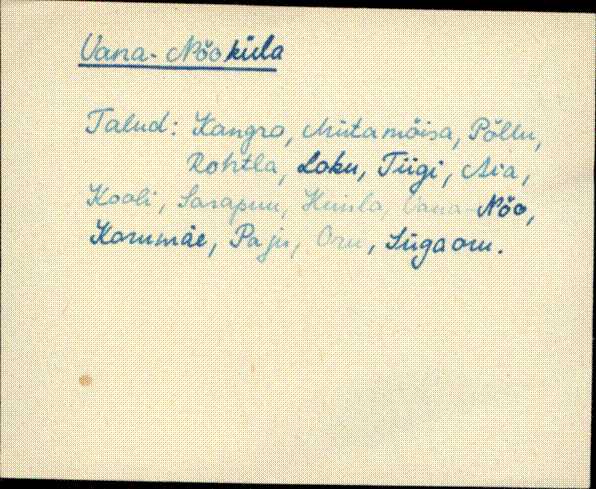 Vana-Nõo küla
Talud: Kangro, Mütamõisa, Põllu,
Rohtla, Loku, Tiigi, Aia,
Kooli, Sarapuu, Vana-Nõo,
Karumäe, Paju, Oru, Sügaoru.